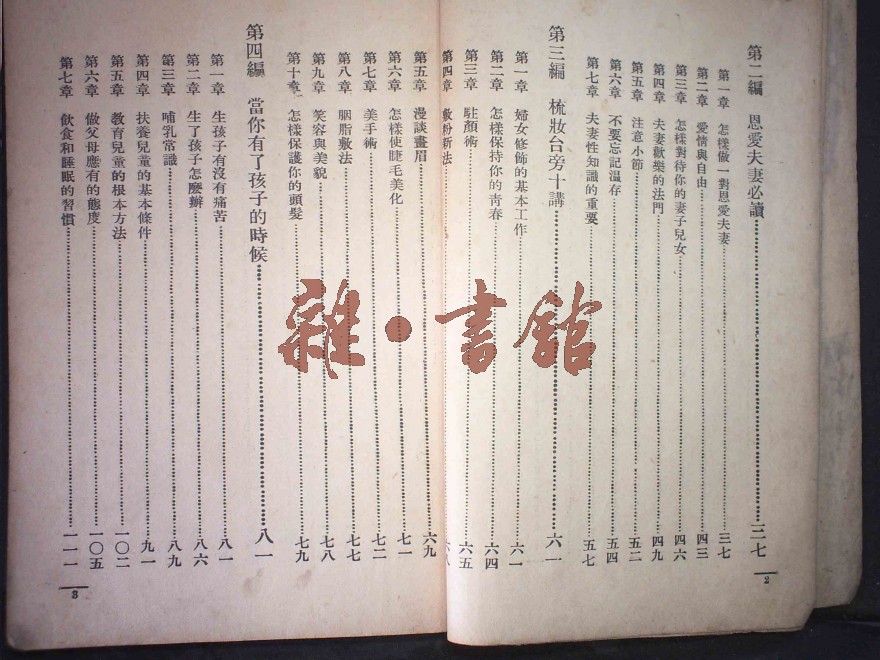 第二編 恩愛夫妻必讀 三七
第一章 怎樣做一對恩愛夫妻 三七
第二章 愛情與自由 四三
第三章 怎樣對待你的妻子兒女 四六
第四章 夫妻歡樂的法門 四九
第五章 注意小節 五二
第六章 不要忘記溫存 五四
第七章 夫妻性知識的重要 五七
第三編 梳妝台旁十講 六一
第一章 婦女修飾的基本工作 六一
第二章 怎樣保持你的青春 六四
第三章 駐顏術 六五
2
第四章 敷粉新法 六八
第五章 漫談畫眉 六九
第六章 怎樣使睫毛美化 七一
第七章 美手術 七二
第八章 胭脂敷法 七七
第九章 笑容與美貌 七八
第十章 怎樣保護你的頭髮 七九
第四編 當你有了孩子的時候 八一
第一章 生孩子有沒有痛苦 八一
第二章 生了孩子怎麼辦 八六
第三章 哺乳常識 八九
第四章 扶養兒童的基本條件 九一
第五章 教育兒童的根本方法 一〇二
第六章 做父母應有的態度 一〇五
第七章 飲食和睡眠的習慣 一一一
3
雜·書館